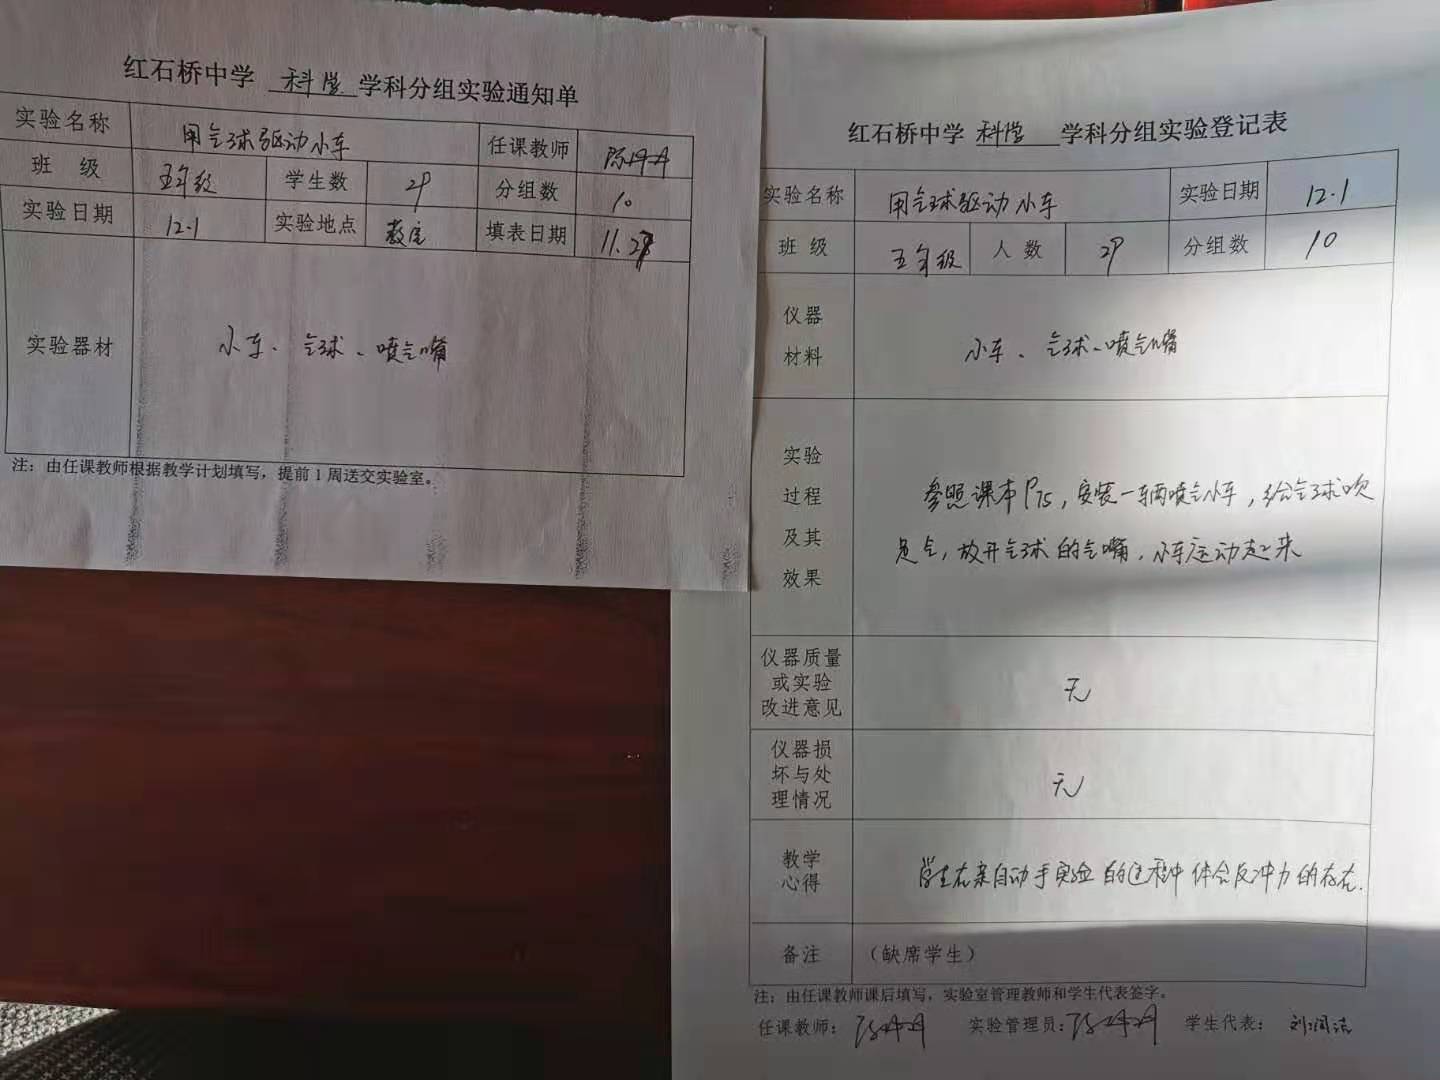 红石桥中学 科学 学科分组实验通知单
实验名称 用气球驱动小车 任课教师 陈丹丹
班 级 五年级 学生数 29 分组数 10
实验日期 12.1 实验地点 教室 填表日期 11.
实验器材 小车、气球、喷气嘴
注：由任课教师根据教学计划填写，提前1周送交实验室。
红石桥中学 科学 学科分组实验登记表
实验名称 用气球驱动小车 实验日期 12.1
班 级 五年级 人 数 29 分组数 10
仪器
材料
小车、气球、喷气嘴
实验
过程
及其
效果
参照课本P75，安装一辆喷气小车，给气球吹
足气，放开气球的气嘴，小车运动起来
仪器质量
或实验
改进意见
无
仪器损
坏与处
理情况
无
教学
心得
学生在亲自动手实验的过程中体会反冲力的存在.
备注 （缺席学生）
注：由任课教师课后填写，实验室管理教师和学生代表签字。
任课教师：陈丹丹 实验管理员：陈丹丹 学生代表：刘润洁